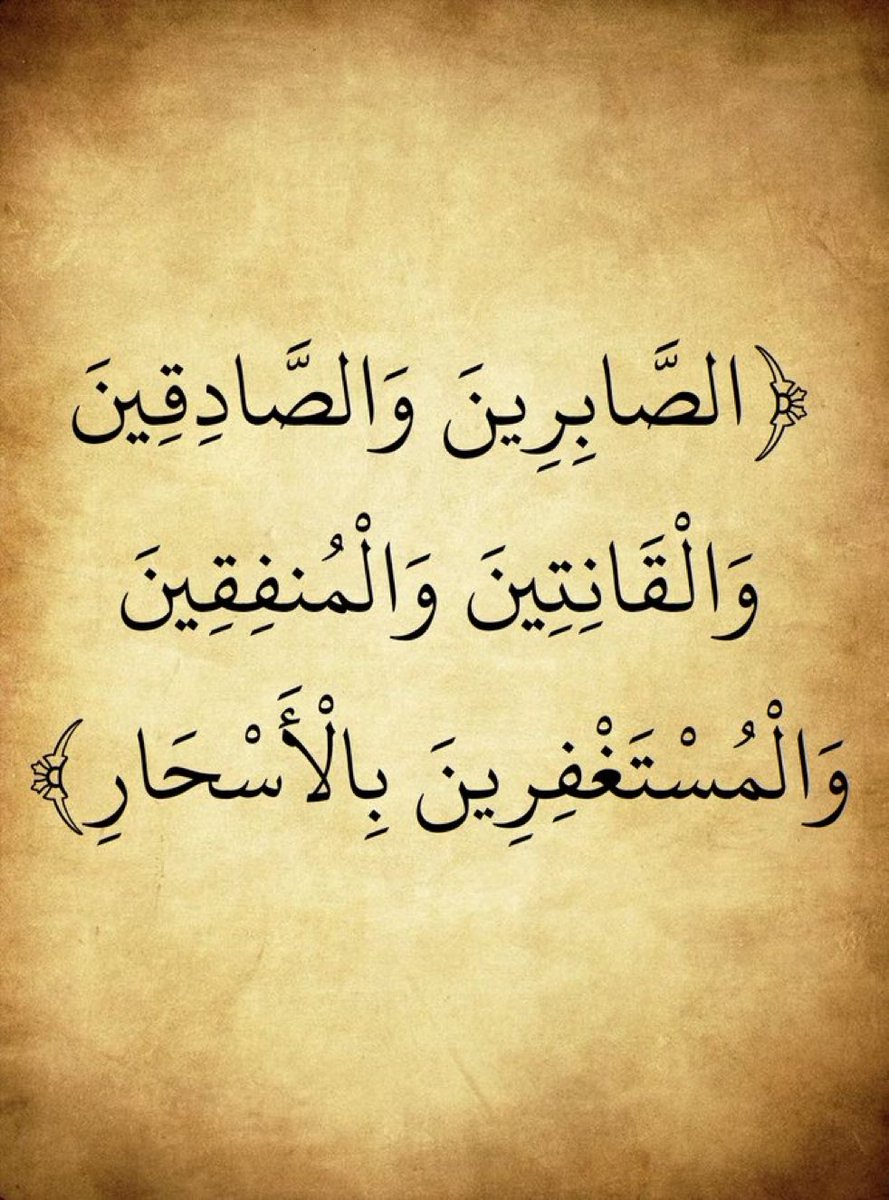 ﴿الصَّابِرِينَ وَالصَّادِقِينَ
وَالْقَانِتِينَ وَالْمُنفِقِينَ
وَالْمُسْتَغْفِرِينَ بِالْأَسْحَارِ﴾